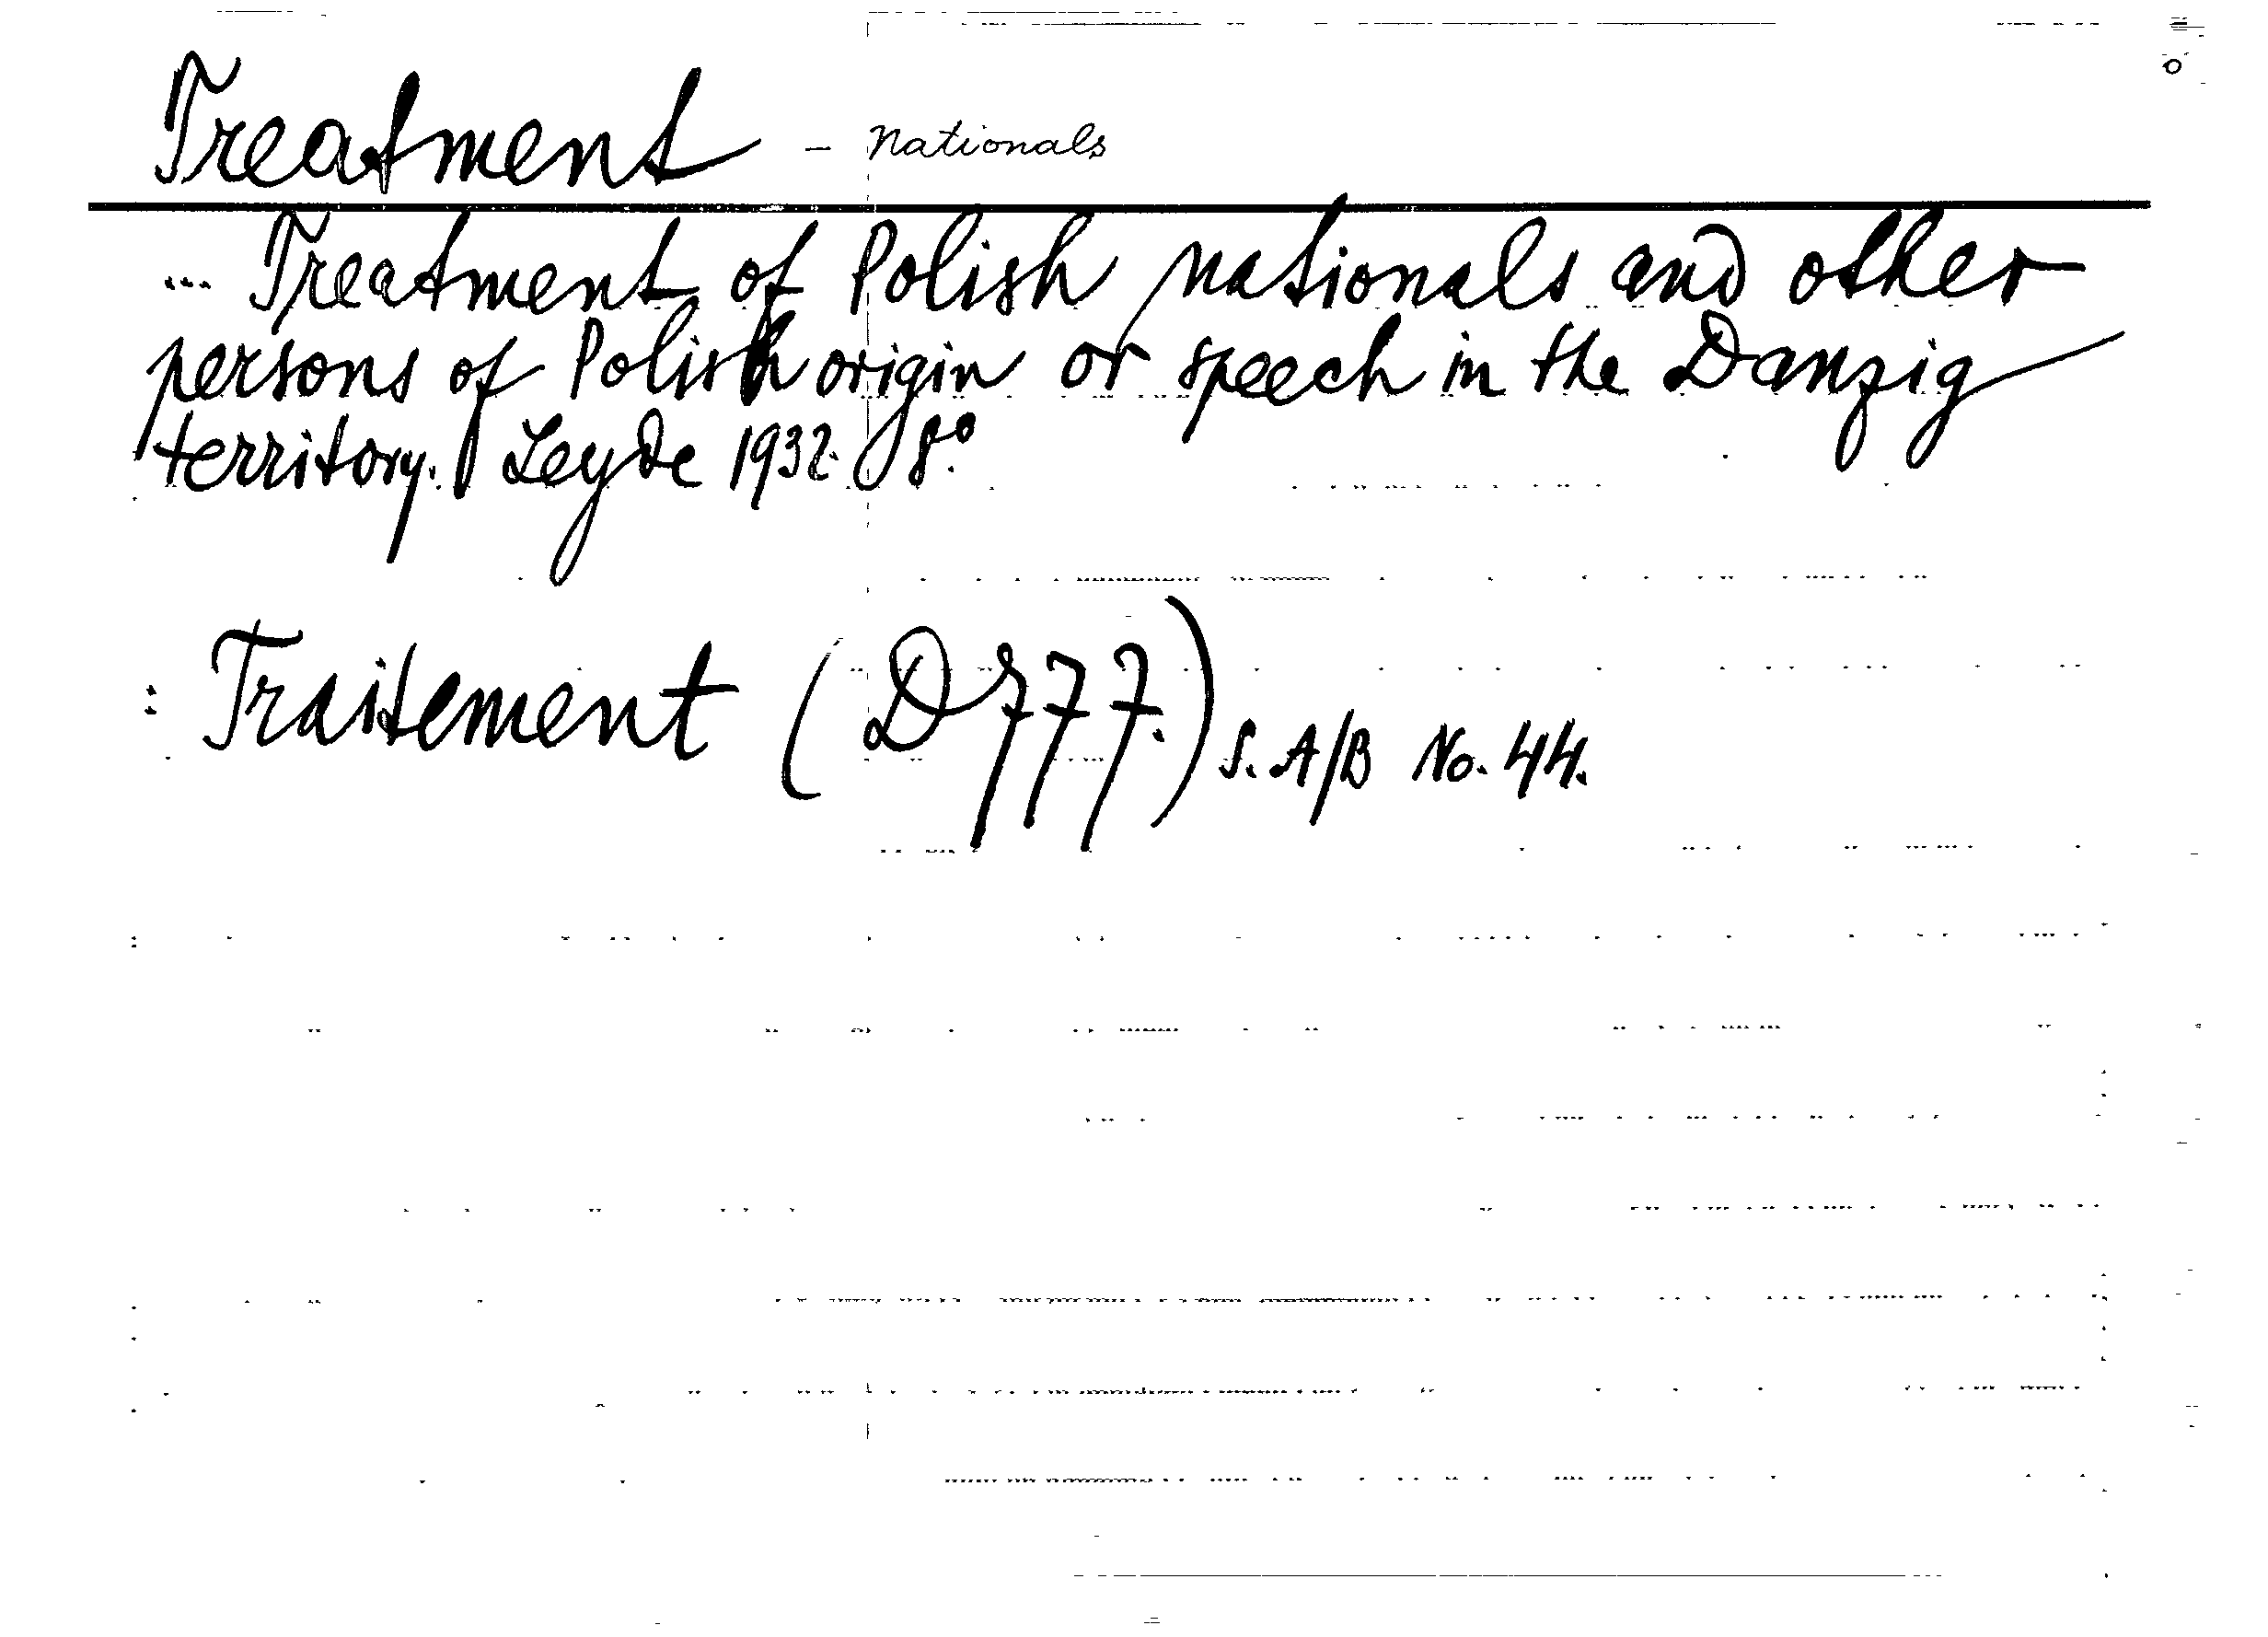 Treatment - Nationals
... Treatment of Polish nationals and other
persons of Polish origin or speech in the Danzig
territory. Leyde 1932. 8°.
: Traitement (D 777.) S. A/B No. 44.